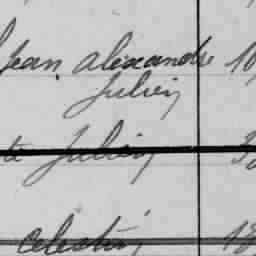 Jean Alexandre 1
Julien
Julien 3
Celestin 18